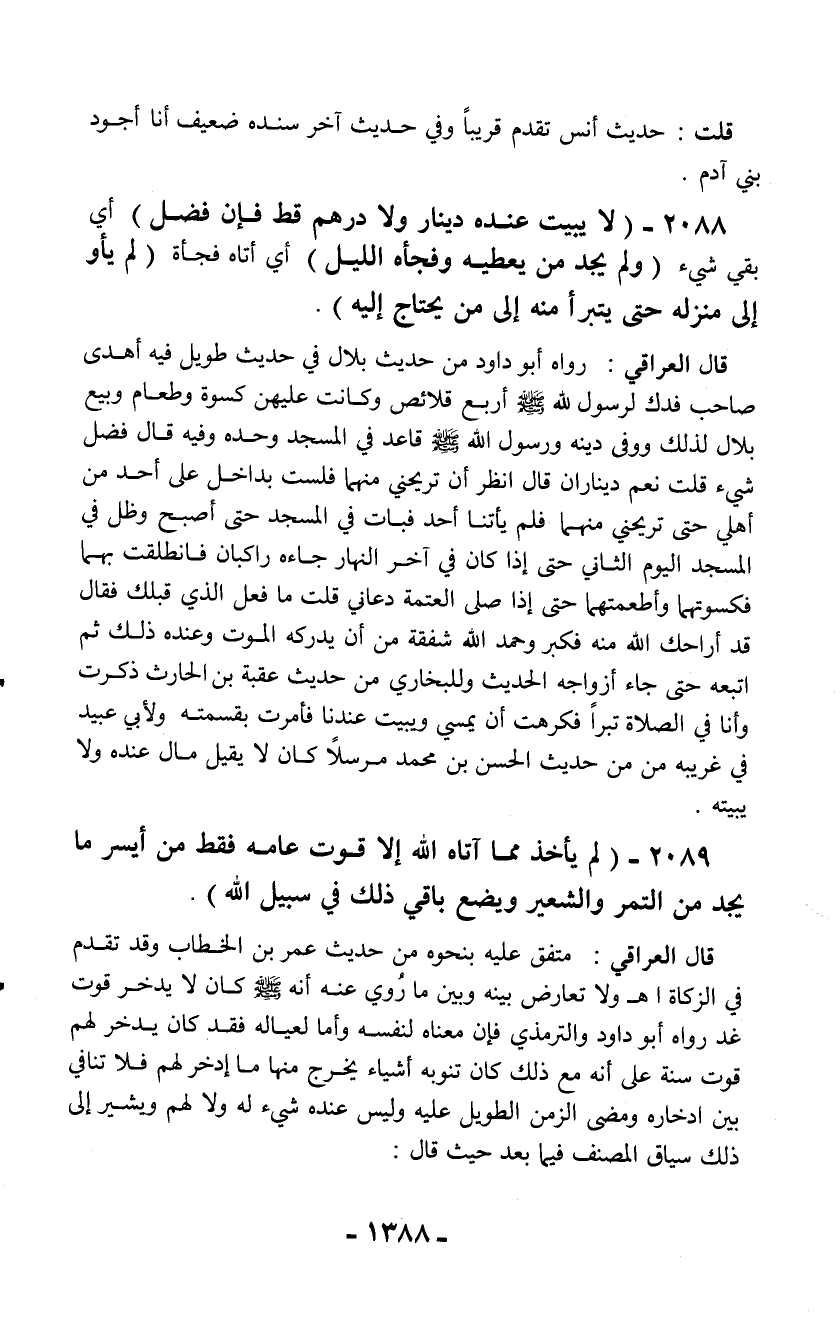 قلت : حديث أنس تقدم قريباً وفي حديث آخر سنده ضعيف أنا أجود
بني آدم .
٢٠٨٨ - ( لا يبيت عنده دينار ولا درهم قط فإن فضل ) أي
بقي شيء ( ولم يجد من يعطيه وفجأه الليل ) أي أتاه فجأة ( لم يأو
إلى منزله حتى يتبرأ منه إلى من يحتاج إليه ) .
قال العراقي : رواه أبو داود من حديث بلال في حديث طويل فيه أهدى
صاحب فدك لرسول لله ﷺ أربع قلائص وكانت عليهن كسوة وطعام وبيع
بلال لذلك ووفى دينه ورسول الله ﷺ قاعد في المسجد وحده وفيه قال فضل
شيء قلت نعم ديناران قال انظر أن تريحني منهما فلست بداخل على أحد من
أهلي حتى تريحني منهما فلم يأتنا أحد فبات في المسجد حتى أصبح وظل في
المسجد اليوم الثاني حتى إذا كان في آخر النهار جاءه راكبان فانطلقت بهما
فكسوتهما وأطعمتهما حتى إذا صلى العتمة دعاني قلت ما فعل الذي قبلك فقال
قد أراحك الله منه فكبر وحمد الله شفقة من أن يدركه الموت وعنده ذلك ثم
اتبعه حتى جاء أزواجه الحديث وللبخاري من حديث عقبة بن الحارث ذكرت
وأنا في الصلاة تبراً فكرهت أن يمسي ويبيت عندنا فأمرت بقسمته ولأبي عبيد
في غريبه من من حديث الحسن بن محمد مرسلاً كان لا يقيل مال عنده ولا
يبيته .
٢٠٨٩ - ( لم يأخذ مما آتاه الله إلا قوت عامه فقط من أيسر ما
يجد من التمر والشعير ويضع باقي ذلك في سبيل الله ) .
قال العراقي : متفق عليه بنحوه من حديث عمر بن الخطاب وقد تقدم
في الزكاة ا هـ ولا تعارض بينه وبين ما رُوي عنه أنه ﷺ كان لا يدخر قوت
غد رواه أبو داود والترمذي فإن معناه لنفسه وأما لعياله فقد كان يدخر لهم
قوت سنة على أنه مع ذلك كان تنوبه أشياء يخرج منها ما إدخر لهم فلا تنافي
بين ادخاره ومضى الزمن الطويل عليه وليس عنده شيء له ولا لهم ويشير إلى
ذلك سياق المصنف فيما بعد حيث قال :
- ١٣٨٨ -